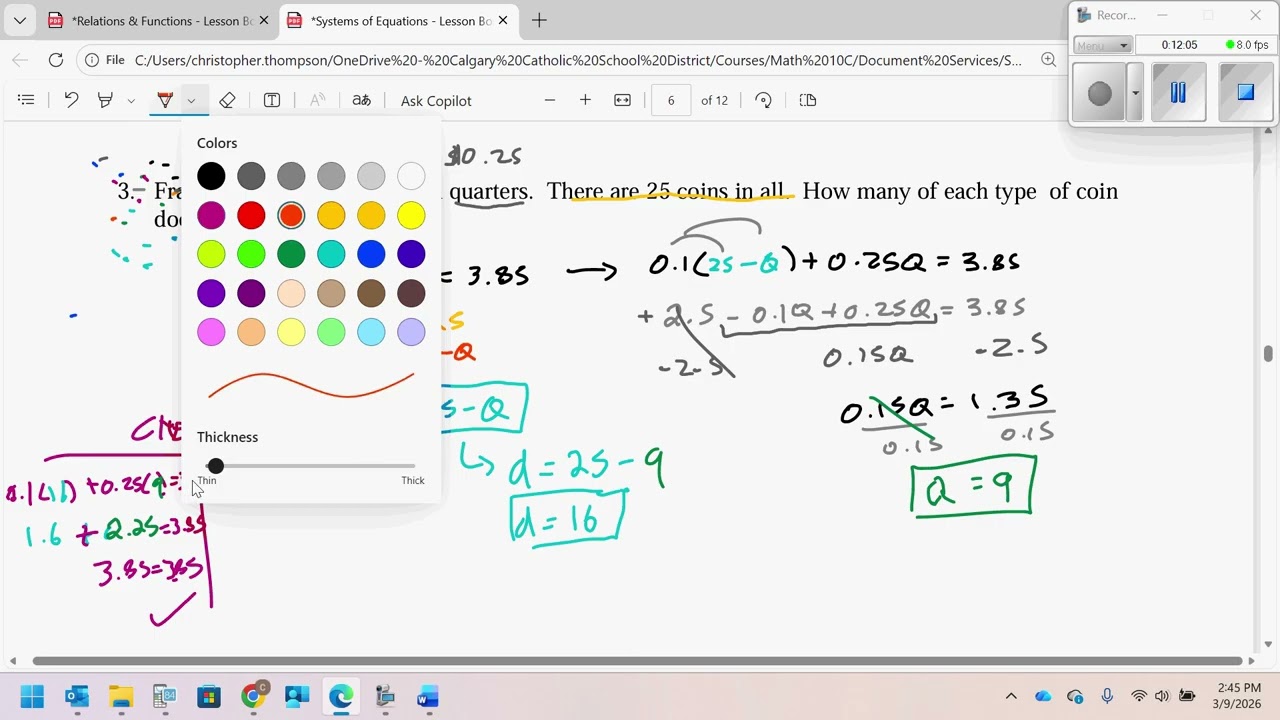 *Relations & Functions - Lesson Bo
*Systems of Equations - Lesson Bo
Recor...
Menu
0:12:05
8.0 fps
File
C:/Users/christopher.thompson/OneDrive%20-%20Calgary%20Catholic%20School%20District/Courses/Math%2010C/Document%20Services/S...
Ask Copilot
6
of 12
Colors
$0.25
3. Fra
quarters. There are 25 coins in all. How many of each type of coin
do
= 3.85
0.1(25-Q)+0.25Q=3.85
+2.5-0.1Q+0.25Q=3.85
-2.5
0.15Q
-2.5
-Q
0.15Q=1.35
0.15
0.15
-Q
d=25-9
d=16
Q=9
Thickness
Thin
Thick
0.1(16)+0.25(9)=3
1.6+2.25=3.85
3.85=3.85
2:45 PM
3/9/2026